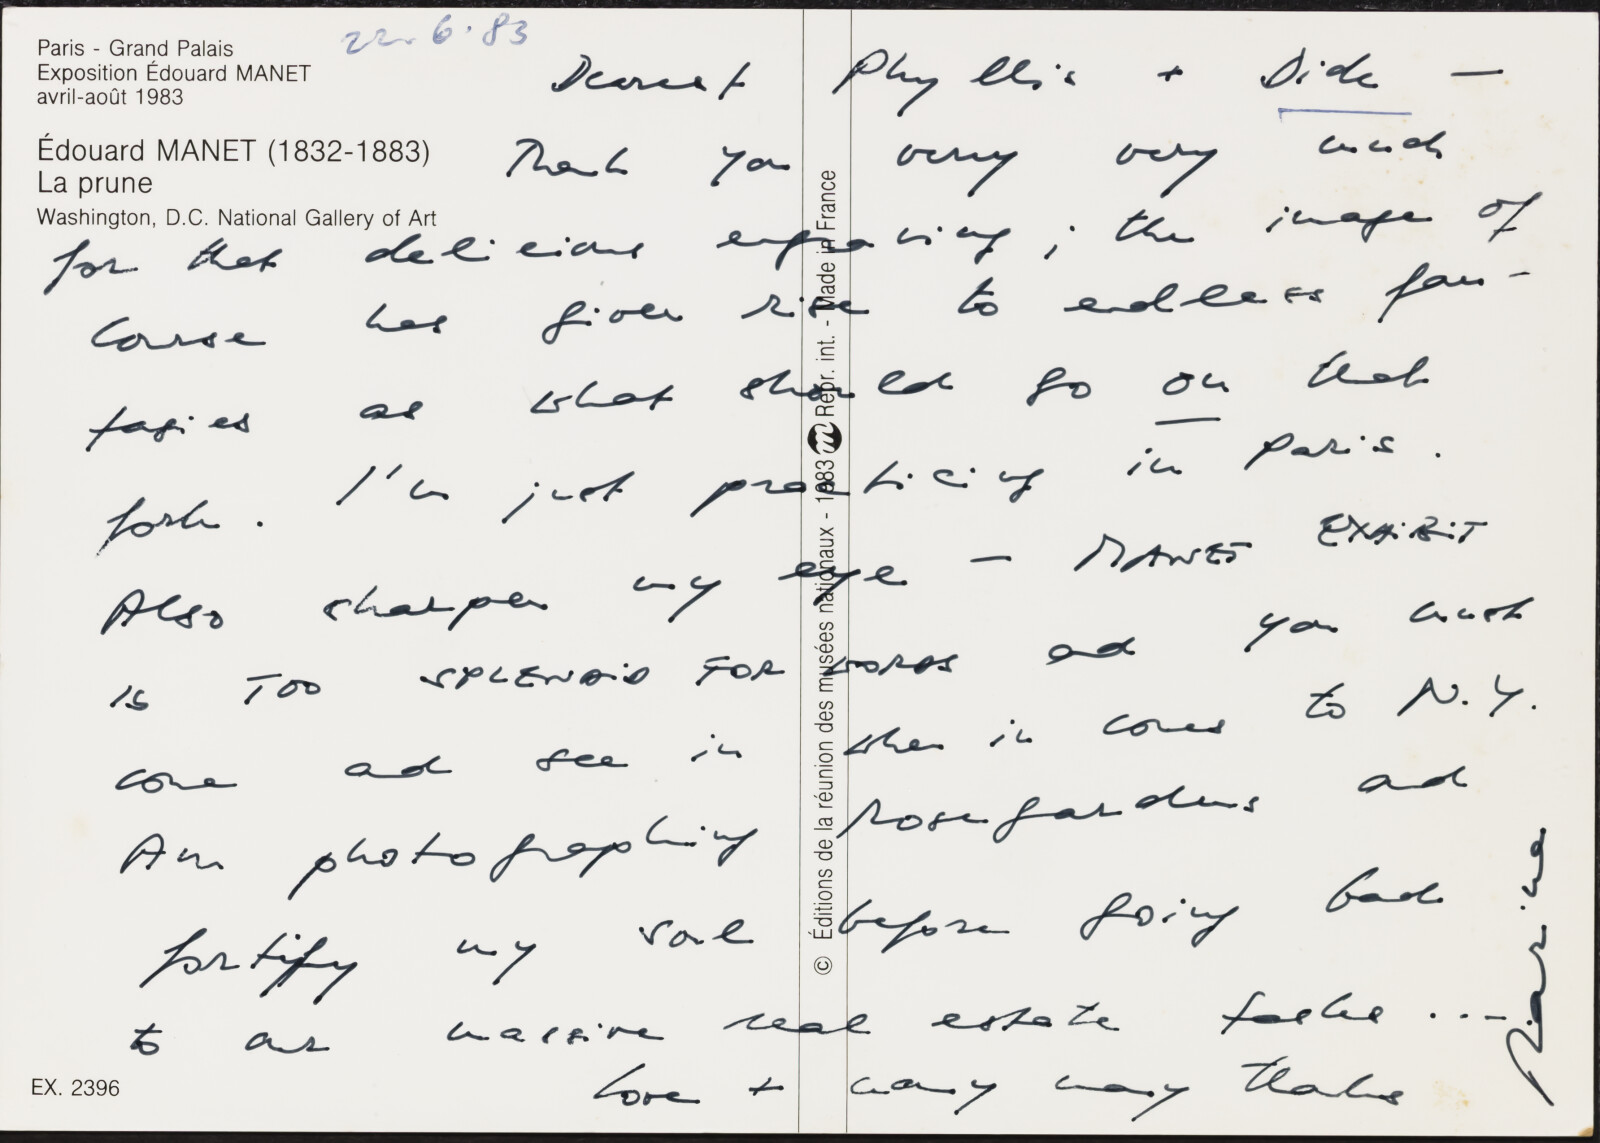 Paris - Grand Palais
Exposition Édouard MANET
avril-août 1983
22.6.83
Édouard MANET (1832-1883)
La prune
Washington, D.C. National Gallery of Art
Dearest Phyllis + Dick —
Thank you very very much
for that delicious engraving ; the image of
course has given rise to endless fan-
tasies as what should go on that
fork. I'm just practicing in Paris.
Also sharpen my eye — MANET EXHIBIT
is TOO SPLENDID FOR WORDS and you must
come and see it when it comes to N.Y.
Am photographing rosegardens and
fortify my soul before going back
to our massive real estate tasks ...
Love + many many thanks
Marina
© Éditions de la réunion des musées nationaux - 1983 Repr. int. - Made in France
EX. 2396